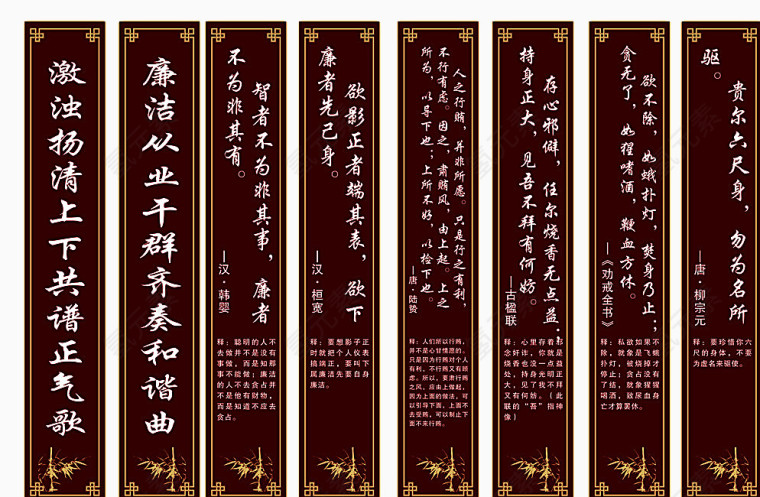 激浊扬清上下共谱正气歌
廉洁从业干群齐奏和谐曲
智者不为非其事，廉者
不为非其有。
—汉·韩婴
释：聪明的人不
去做并不是没有
事做，而是知那
事不能做；廉洁
的人不去贪占并
不是他有财物，
而是知道不应去
贪占。
欲影正者端其表，欲下
廉者先己身。
—汉·桓宽
释：要想影子正
时就把个人仪表
搞端正，要叫下
属廉洁先要自身
廉洁。
人之行贿，并非所愿。只是行之有利，
不行有虑。因之，肃贿风，由上起。上之
所为，以导下也；上所不好，以检下也。
—唐·陆贽
释：人们所以行贿，
并不是心甘情愿的。
只是因为行贿对个人
有利，不行贿又有顾
虑。所以，要肃行贿
之风，应由上做起，
因为上面的做法，可
以引导下面，上面不
去受贿，可以制止下
面不来行贿。
存心邪僻，任尔烧香无点益；
持身正大，见吾不拜有何妨。
—古楹联
释：心里存着邪
念奸诈，你就是
烧香也没一点益
处，持身光明正
大，见了我不拜
又有何妨。（此
联的“吾”指神
像）
欲不除，如蛾扑灯，焚身乃止；
贪无了，如猩嗜酒，鞭血方休。
—《劝戒全书》
释：私欲如果不
除，就象是飞蛾
扑灯，被烧掉才
停止；贪占没有
了结，就象猩猩
喝酒，致尿血身
亡才算罢休。
贵尔六尺身，勿为名所
驱。
—唐·柳宗元
释：要珍惜你六
尺的身体，不要
为虚名来驱使。